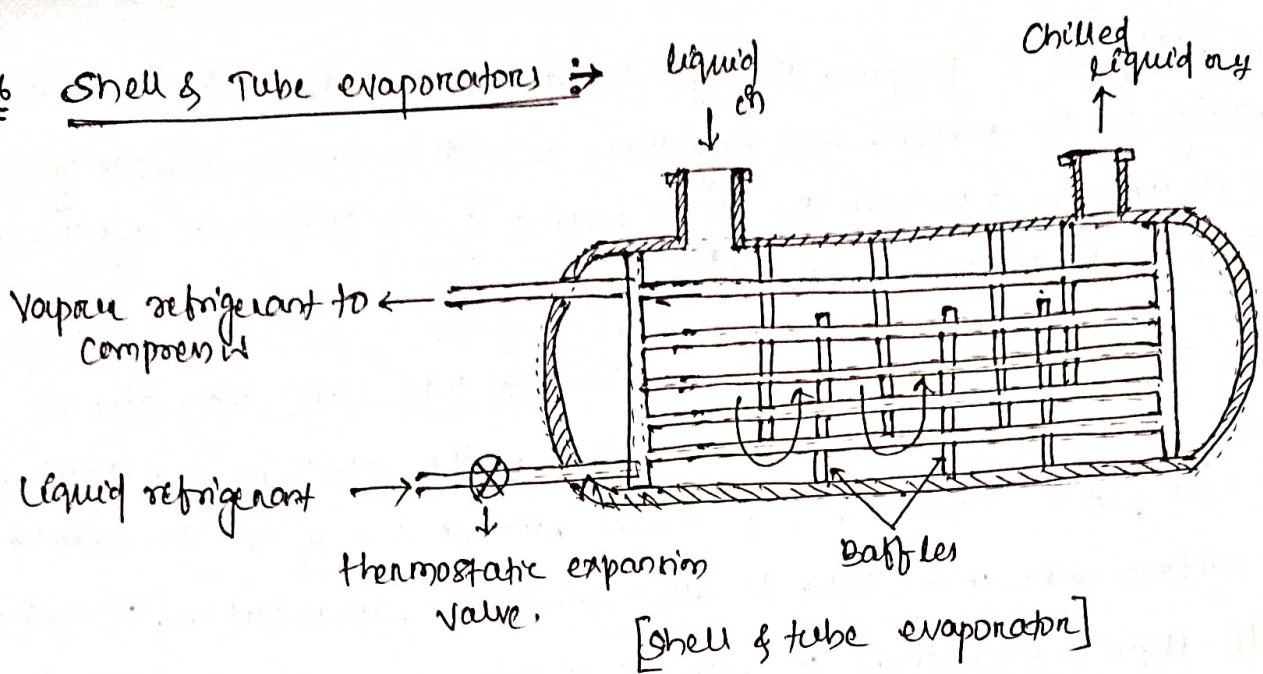 6 Shell & Tube evaporators :→
liquid
in
Chilled
liquid out
Vapour refrigerant to ←
compressor
liquid refrigerant →
thermostatic expansion
valve.
Baffles
[shell & tube evaporator]